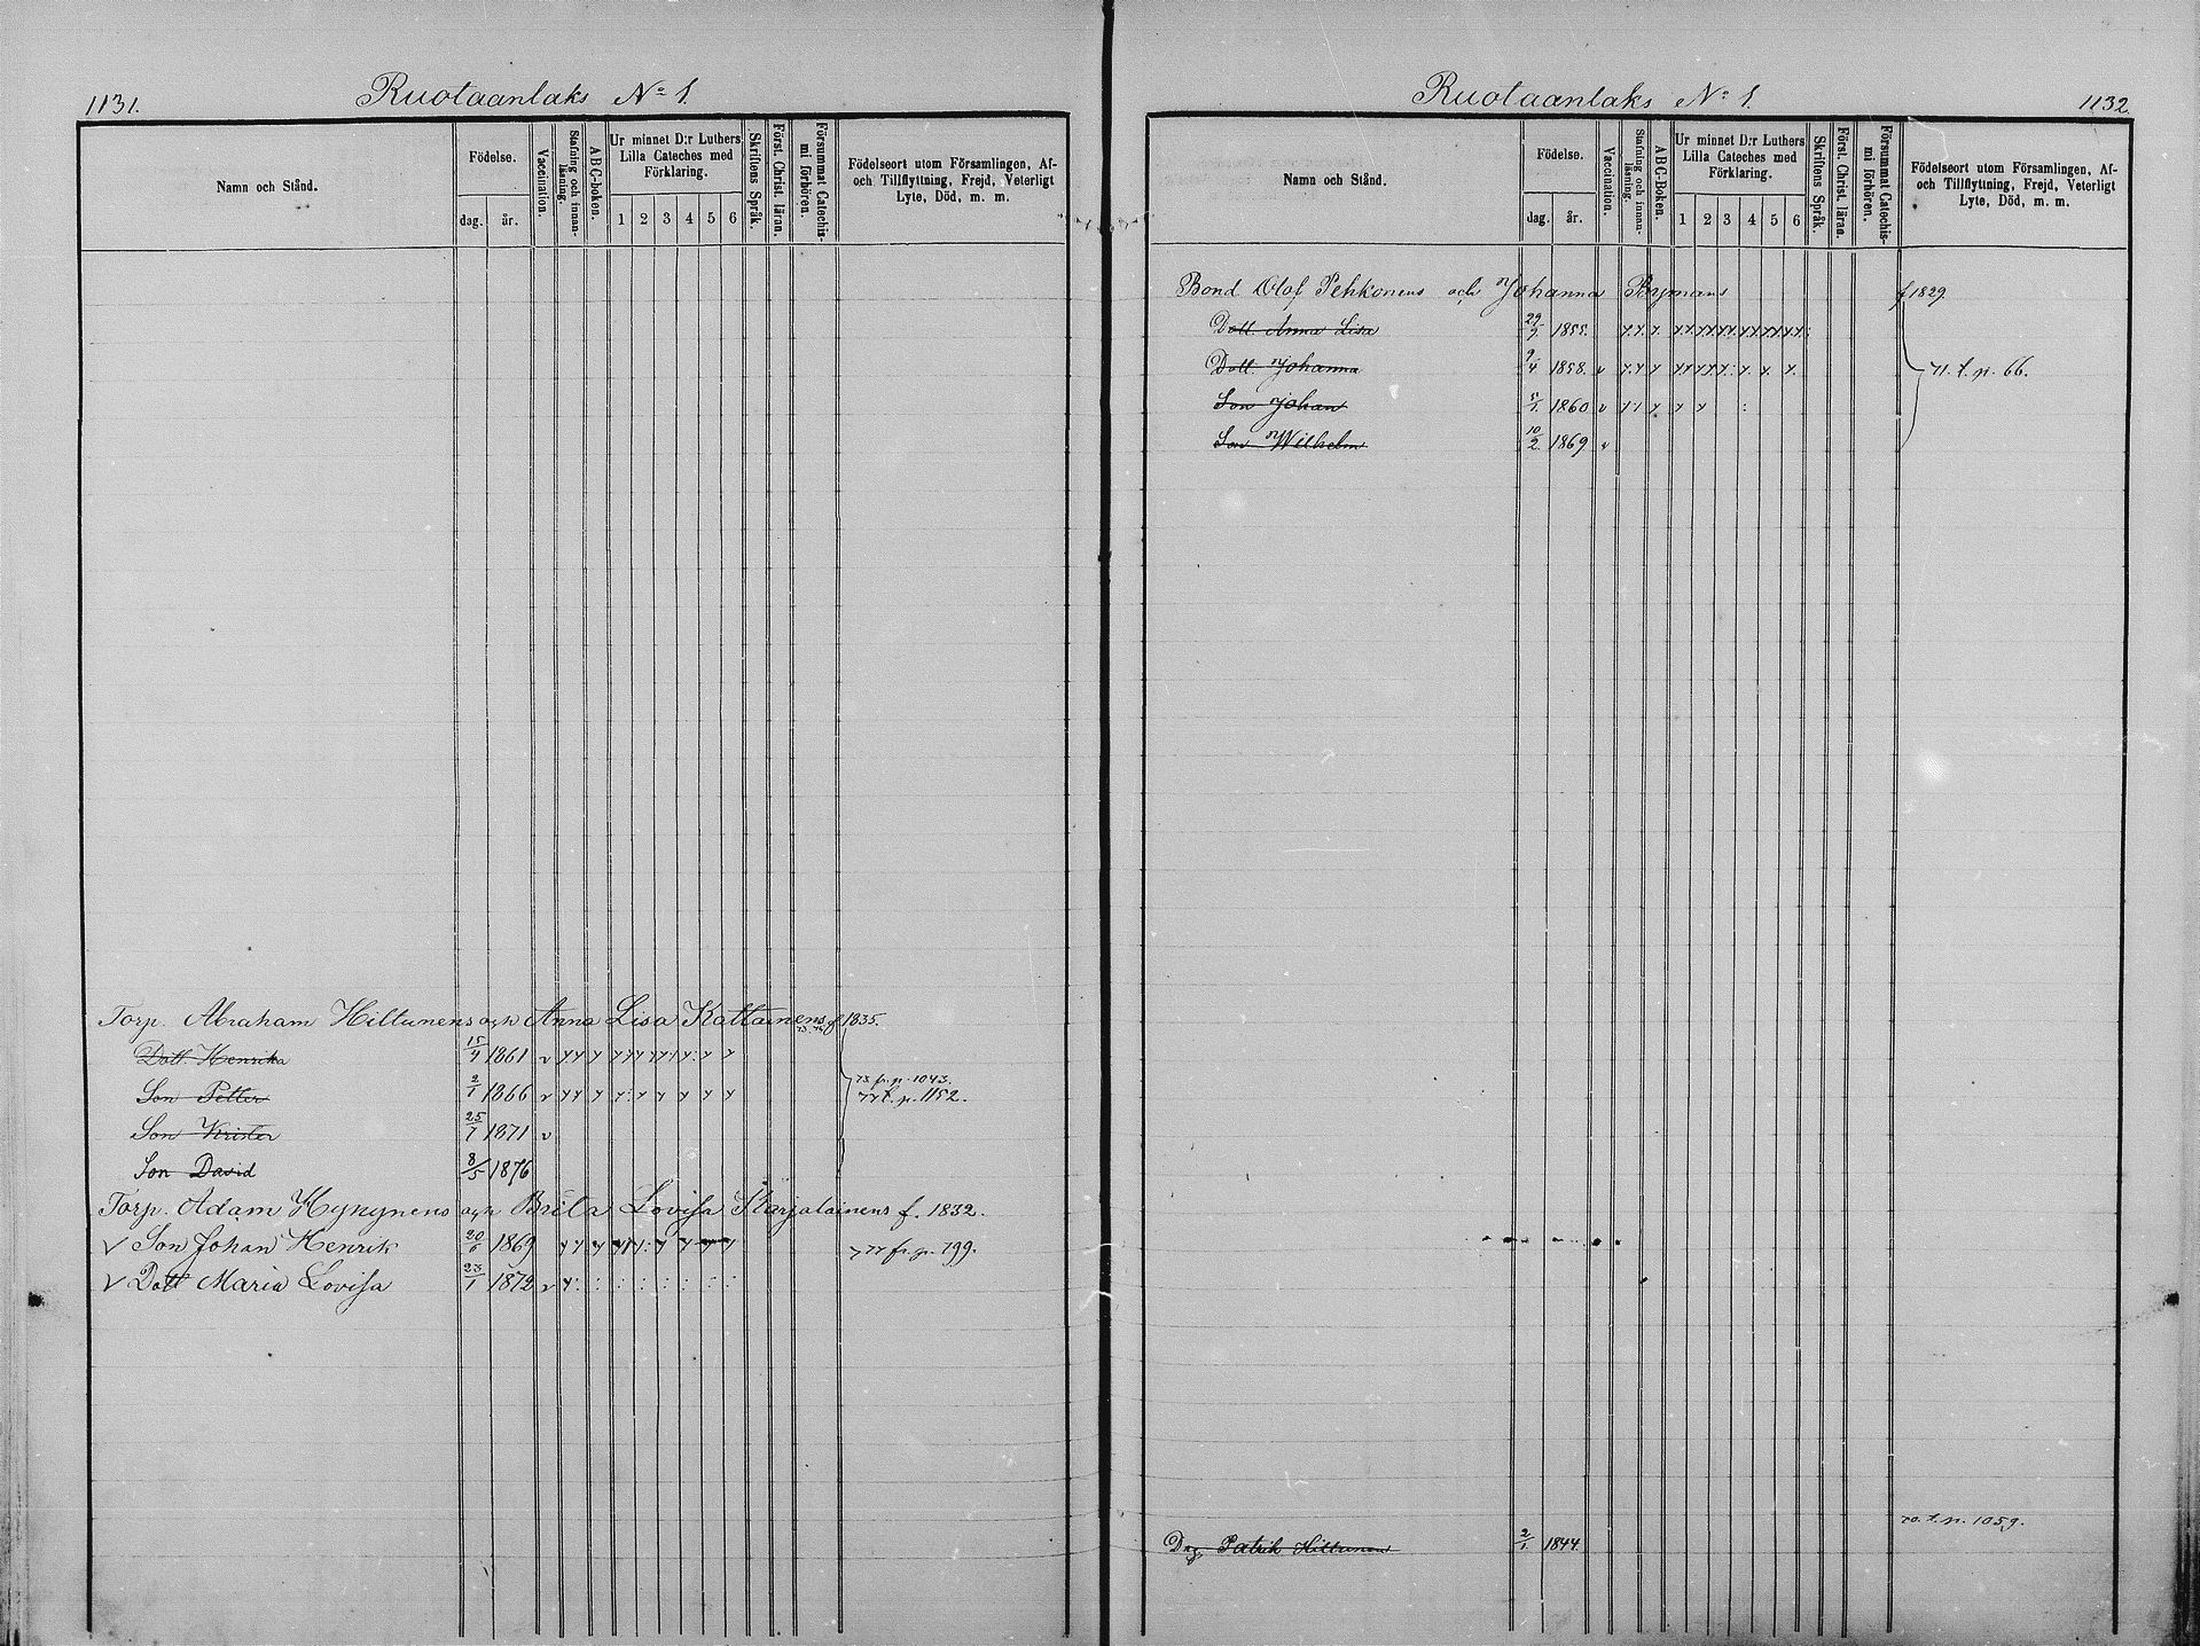 1131.
Ruotaanlaks No 1.
Namn och Stånd.
Födelse.
dag. år.
Vaccination.
Stafning och innan-läsning.
ABC-boken.
Ur minnet D:r Luthers
Lilla Cateches med
Förklaring.
1 2 3 4 5 6
Skriftens Språk.
Först. Christ. läran.
Försummat Catechis-mi förhören.
Födelseort utom Församlingen, Af-
och Tillflyttning, Frejd, Veterligt
Lyte, Död, m. m.
Torp. Abraham Hiltunens och Anna Lisa Kattainens f 1835.
Dott. Henrika 15/4 1861 v
Son Petter 2/1 1866 v
73 fr. p. 1043.
77 t. p. 1152.
Son Krister 25/7 1871 v
Son David 8/5 1876
Torp. Adam Hynynens och Brita Lovisa Karjalainens f. 1832.
v Son Johan Henrik 20/6 1869
77 fr. p. 799.
v Dott Maria Lovisa 23/1 1872 v
Ruotaanlaks No 1.
1132
Namn och Stånd.
Födelse.
dag. år.
Vaccination.
Stafning och innan-läsning.
ABC-Boken.
Ur minnet D:r Luthers
Lilla Cateches med
Förklaring.
1 2 3 4 5 6
Skriftens Språk.
Först. Christ. läran.
Försummat Catechis-mi förhören.
Födelseort utom Församlingen, Af-
och Tillflyttning, Frejd, Veterligt
Lyte, Död, m. m.
Bond Olof Pehkonens och Johanna Rymans f 1829.
Dott. Anna Lisa 29/9 1855.
Dott. Johanna 9/4 1858. v
71. t. p. 66.
Son Johan 5/1. 1860 v
Son Wilhelm 10/2. 1869 v
70. t. p. 1059.
Drg Patrik Hiltunen 2/1. 1844.